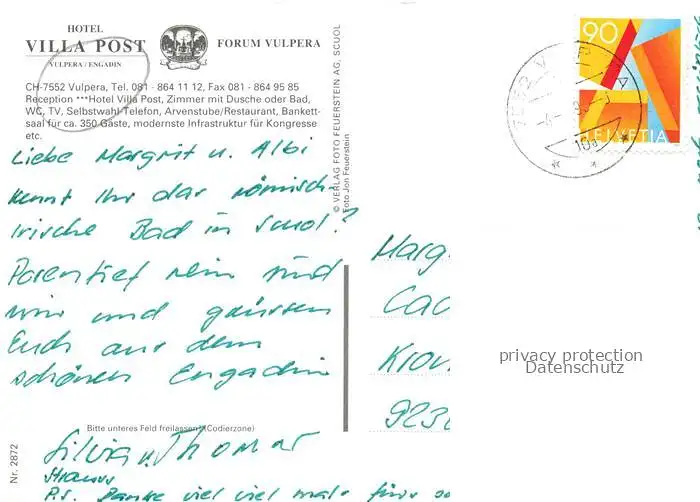 HOTEL
VILLA POST FORUM VULPERA
VULPERA / ENGADIN
CH-7552 Vulpera, Tel. 081 - 864 11 12, Fax 081 - 864 95 85
Reception ***Hotel Villa Post, Zimmer mit Dusche oder Bad,
WC, TV, Selbstwahl-Telefon, Arvenstube/Restaurant, Bankett-
saal für ca. 350 Gäste, modernste Infrastruktur für Kongresse
etc.
Liebe Margrit u. Albi
kennt Ihr das römisch
Irische Bad in Scuol?
Porentief rein sind
wir und grüssen
Euch aus dem
schönen Engadin
Bitte unteres Feld freilassen (Codierzone)
Silvia u. Thomas
Strauss
P.S. Danke viel viel mals für
Nr. 2872
© VERLAG FOTO FEUERSTEIN AG, SCUOL
Foto Jon Feuerstein
90
HELVETIA
Marg
Cad
923
privacy protection
Datenschutz